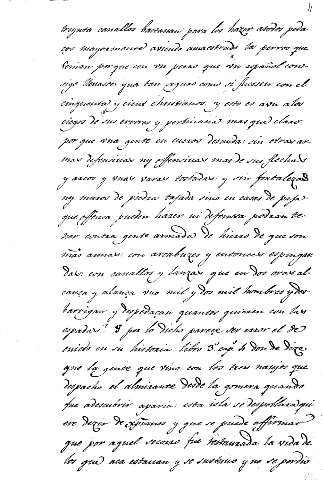 treynta cavallos bastauan para los hazer atodos peda
ços mayormente aviendo amaestrado los perros que
tenian porque con un perro que un español con
sigo llevava yva tan seguro como si fuessen con el
cinquenta y cient christianos, y esto es aun a los
ciegos de sus errores y pertinacia mas que claro
por que una gente en cueros desnuda sin otras ar
mas defensivas ny offensivas mas de sus flechas
y arcos y unas varas tostadas y sin fortalezas
ny muros de piedra tajada sino en casas de paja
que offensa pueden hazer ni defenssa podran te
ner contra gente armada de hierro de que son
mas armas con arcabuzes y entonces espingar
das con cavallos y lanzas que en dos oras al
cança y alança uno mil y dos mil hombres y des
barrigan y despedaçan quantos quieren con las
espadas. por lo dicho parece ser error el de
oviedo en su historia libro 3º capº 4 donde dize
que la gente que vino con los tres navios que
despacho el almirante desde la gomera quando
fue a descubrir a paria esta isla se despoblara qui
ere dezir de xpianos y que se puede affirmar
que por aquel socorro fue restaurada la vida de
los que aca estavan y se sostuvo y no se perdio